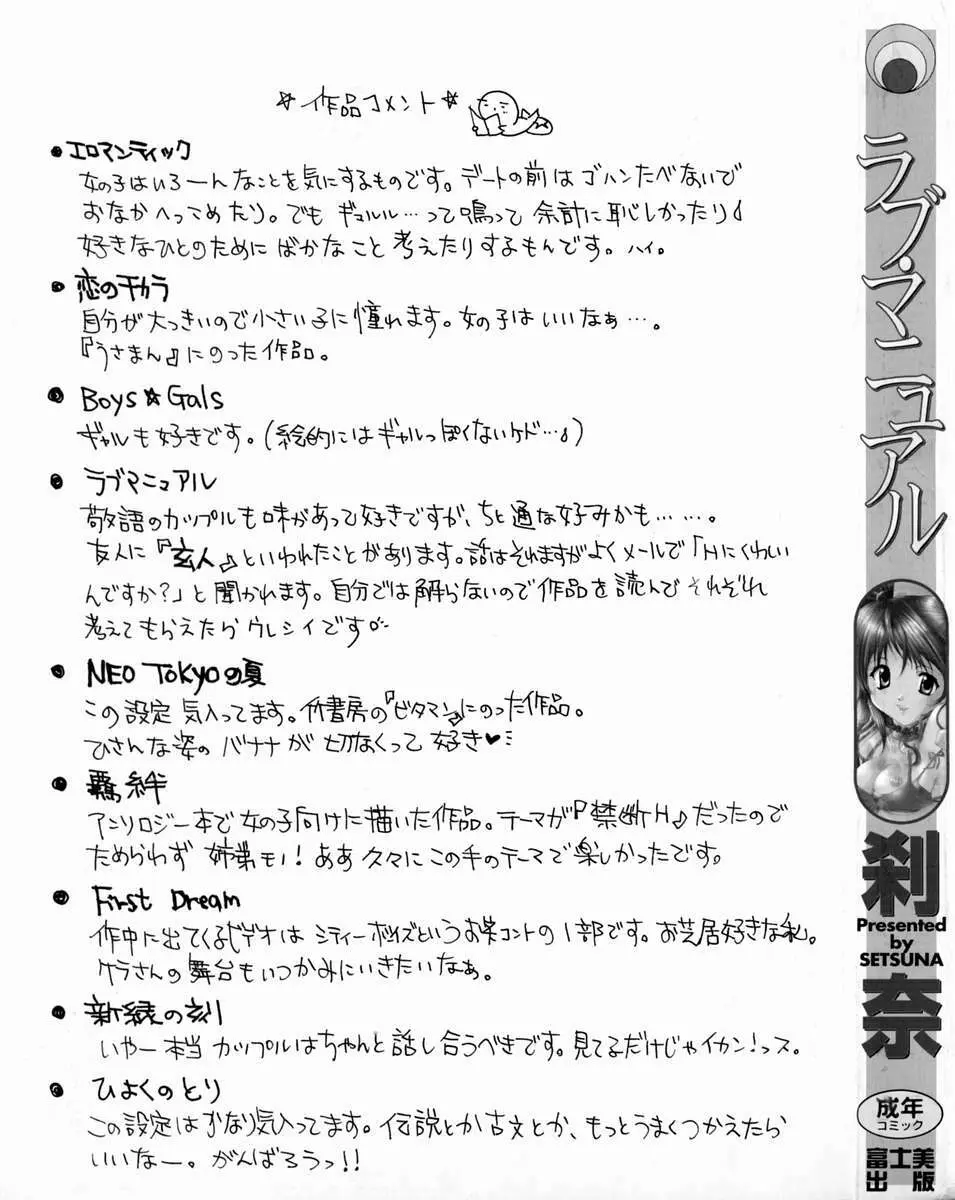 ☆作品コメント☆
• エロマンティック
女の子はいろーんなことを気にするものです。デートの前はゴハンたべないで
おなかへっこめたり。でも ギュルル…って鳴って 余計に恥しかったり♪
好きなひとのために ばかなこと 考えたりするもんです。ハイ。
• 恋のチカラ
自分が大っきいので小さい子に憧れます。女の子はいいなぁ…。
『うさまん』にのった作品。
• Boys☆Gals
ギャルも好きです。(絵的にはギャルっぽくないケド…♪)
• ラブマニュアル
敬語のカップルも味があって好きですが、ちと通な好みかも……。
友人に『玄人』といわれたことがあります。話はそれますがよくメールで「Hにくわしい
んですか?」と聞かれます。自分では解らないので作品を読んでそれぞれ
考えてもらえたらウレシイです
• NEO TOKYOの夏
この設定 気入ってます。竹書房の『ビタマン』にのった作品。
ひさんな姿の バナナが 切なくって 好き♥
• 羈絆
アンソロジー本で女の子向けに描いた作品。テーマが『禁断H』だったので
ためらわず 姉弟モノ!ああ 久々に この手のテーマで楽しかったです。
• First Dream
作中に出てくるビデオは シティーボーイズというお笑コントの1部です。お芝居好きな私。
ケラさんの舞台もいつかみにいきたいなぁ。
• 新緑の刻
いやー本当 カップルはちゃんと話し合うべきです。見てるだけじゃイカン!っス。
• ひよくのとり
この設定はかなり気入ってます。伝説とか古文とか、もっとうまくつかえたら
いいなー。がんばろうっ!!
ラブ・マニュアル
刹奈
Presented
by
SETSUNA
成年
コミック
富士美
出版